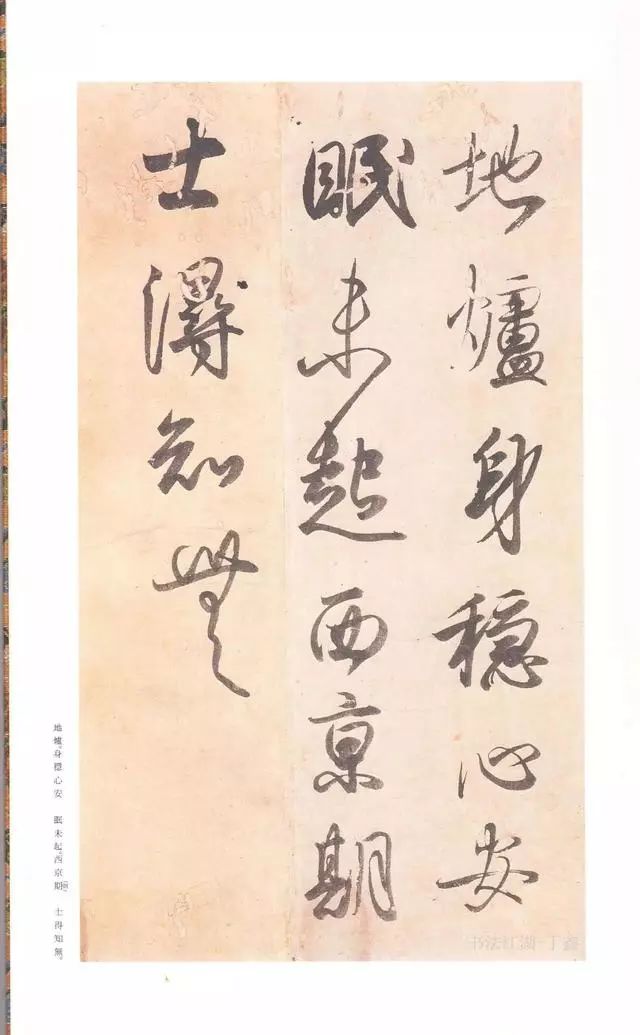 地爐身穩心安
眠未起西京期
士得知無
地爐。身穩心安　眠未起。西京期　士得知無。
书法江湖